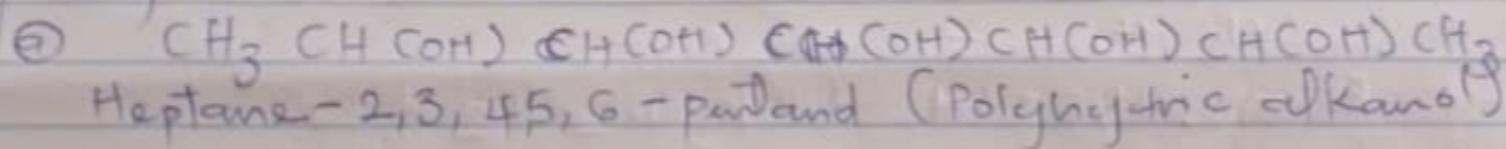 ⑦ CH₃ CH(OH) CH(OH) CH(OH) CH(OH) CH(OH) CH₃
Heptane-2,3,45,6-pentanol (Polyhydric alkanol)